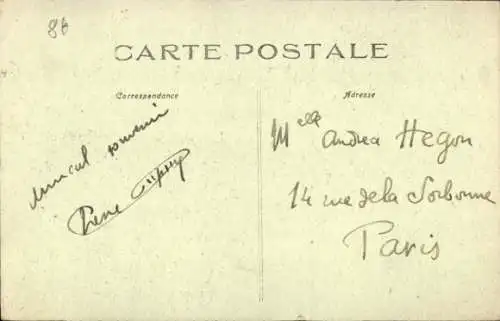 86
CARTE POSTALE
Correspondance
Adresse
Amical souvenir
Pierre
Melle Andrea Hegon
14 rue de la Sorbonne
Paris